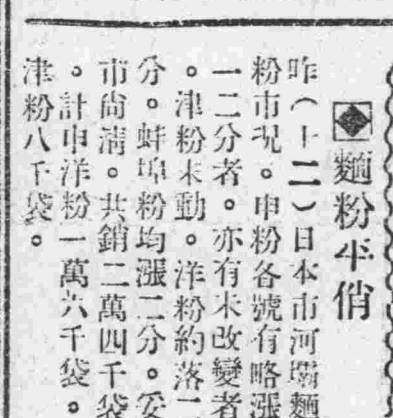 麵粉平俏
昨（十二）日本市河壩麵
粉市況。申粉各號有略漲
一二分者。亦有未改變者
。津粉未動。洋粉約落二
分。蚌埠粉均漲二分。妥
市尙淸。共銷二萬四千袋
。計申洋粉一萬六千袋。
津粉八千袋。